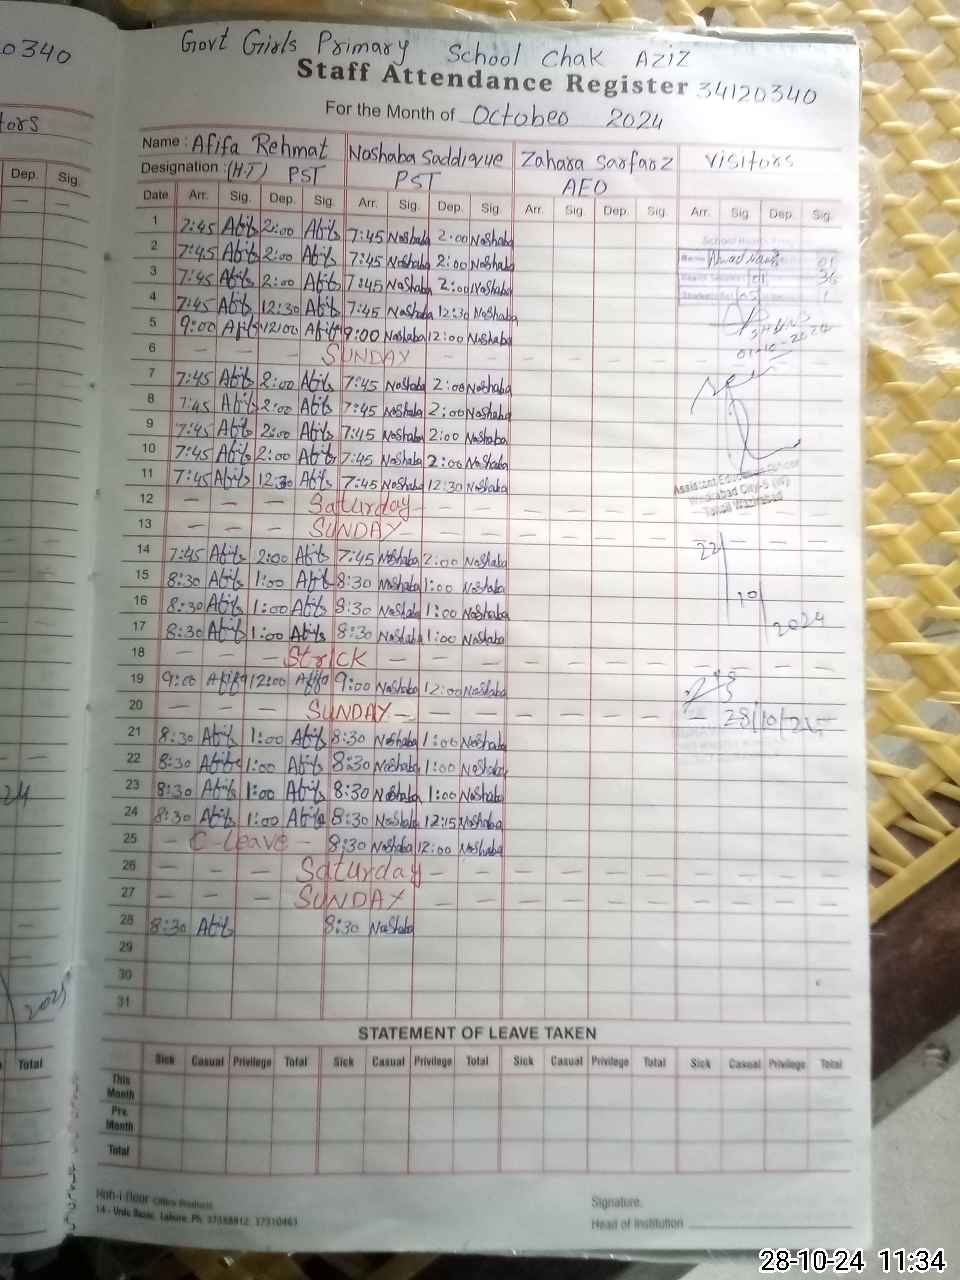 0340
Govt Girls Primary School Chak Aziz
Staff Attendance Register 34120340
For the Month of October 2024
Name : Afifa Rehmat Noshaba Saddique Zahara Sarfarz Visitors
Designation : (H.T) PST PST AEO
Date Arr. Sig. Dep. Sig. Arr. Sig. Dep. Sig. Arr. Sig. Dep. Sig. Arr. Sig. Dep. Sig.
1 7:45 Afifa 2:00 Afifa 7:45 Noshaba 2:00 Noshaba
2 7:45 Afifa 2:00 Afifa 7:45 Noshaba 2:00 Noshaba
3 7:45 Afifa 2:00 Afifa 7:45 Noshaba 2:00 Noshaba
4 7:45 Afifa 12:30 Afifa 7:45 Noshaba 12:30 Noshaba
5 9:00 Afifa 12:00 Afifa 9:00 Noshaba 12:00 Noshaba
01-10-2024
6 SUNDAY
7 7:45 Afifa 2:00 Afifa 7:45 Noshaba 2:00 Noshaba
8 7:45 Afifa 2:00 Afifa 7:45 Noshaba 2:00 Noshaba
9 7:45 Afifa 2:00 Afifa 7:45 Noshaba 2:00 Noshaba
10 7:45 Afifa 2:00 Afifa 7:45 Noshaba 2:00 Noshaba
11 7:45 Afifa 12:30 Afifa 7:45 Noshaba 12:30 Noshaba
Assistant Education Officer
Wazirabad City-5 (W)
Tehsil Wazirabad
12 Saturday
13 SUNDAY
14 7:45 Afifa 2:00 Afifa 7:45 Noshaba 2:00 Noshaba 22
15 8:30 Afifa 1:00 Afifa 8:30 Noshaba 1:00 Noshaba
16 8:30 Afifa 1:00 Afifa 8:30 Noshaba 1:00 Noshaba 10
17 8:30 Afifa 1:00 Afifa 8:30 Noshaba 1:00 Noshaba 2024
18 Strick
19 9:00 Afifa 12:00 Afifa 9:00 Noshaba 12:00 Noshaba
20 SUNDAY 28/10/24
21 8:30 Afifa 1:00 Afifa 8:30 Noshaba 1:00 Noshaba
22 8:30 Afifa 1:00 Afifa 8:30 Noshaba 1:00 Noshaba
23 8:30 Afifa 1:00 Afifa 8:30 Noshaba 1:00 Noshaba
24 8:30 Afifa 1:00 Afifa 8:30 Noshaba 12:15 Noshaba
25 C-Leave 8:30 Noshaba 12:00 Noshaba
26 Saturday
27 SUNDAY
28 8:30 Afifa 8:30 Noshaba
29
30
31
STATEMENT OF LEAVE TAKEN
Sick Casual Privilege Total Sick Casual Privilege Total Sick Casual Privilege Total Sick Casual Privilege Total
This Month
Pre. Month
Total
Koh-i-Noor Office Products
14 - Urdu Bazar, Lahore. Ph:
Signature.
Head of Institution
Dep. Sig.
Total
28-10-24 11:34